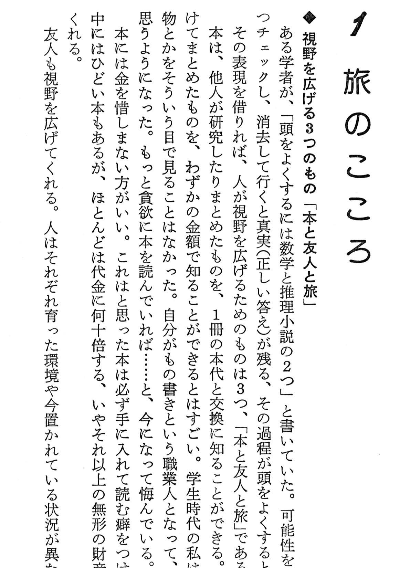 1 旅のこころ
◆ 視野を広げる3つのもの「本と友人と旅」
ある学者が、「頭をよくするには数学と推理小説の2つ」と書いていた。可能性を
つチェックし、消去して行くと真実(正しい答え)が残る、その過程が頭をよくすると
その表現を借りれば、人が視野を広げるためのものは3つ、「本と友人と旅」である
本は、他人が研究したりまとめたものを、1冊の本代と交換に知ることができる。
けてまとめたものを、わずかの金額で知ることができるとはすごい。学生時代の私は
物とかをそういう目で見ることはなかった。自分がもの書きという職業人となって、
思うようになった。もっと貪欲に本を読んでいれば……と、今になって悔んでいる。
本には金を惜しまない方がいい。これはと思った本は必ず手に入れて読む癖をつけ
中にはひどい本もあるが、ほとんどは代金に何十倍する、いやそれ以上の無形の財産
くれる。
友人も視野を広げてくれる。人はそれぞれ育った環境や今置かれている状況が異な